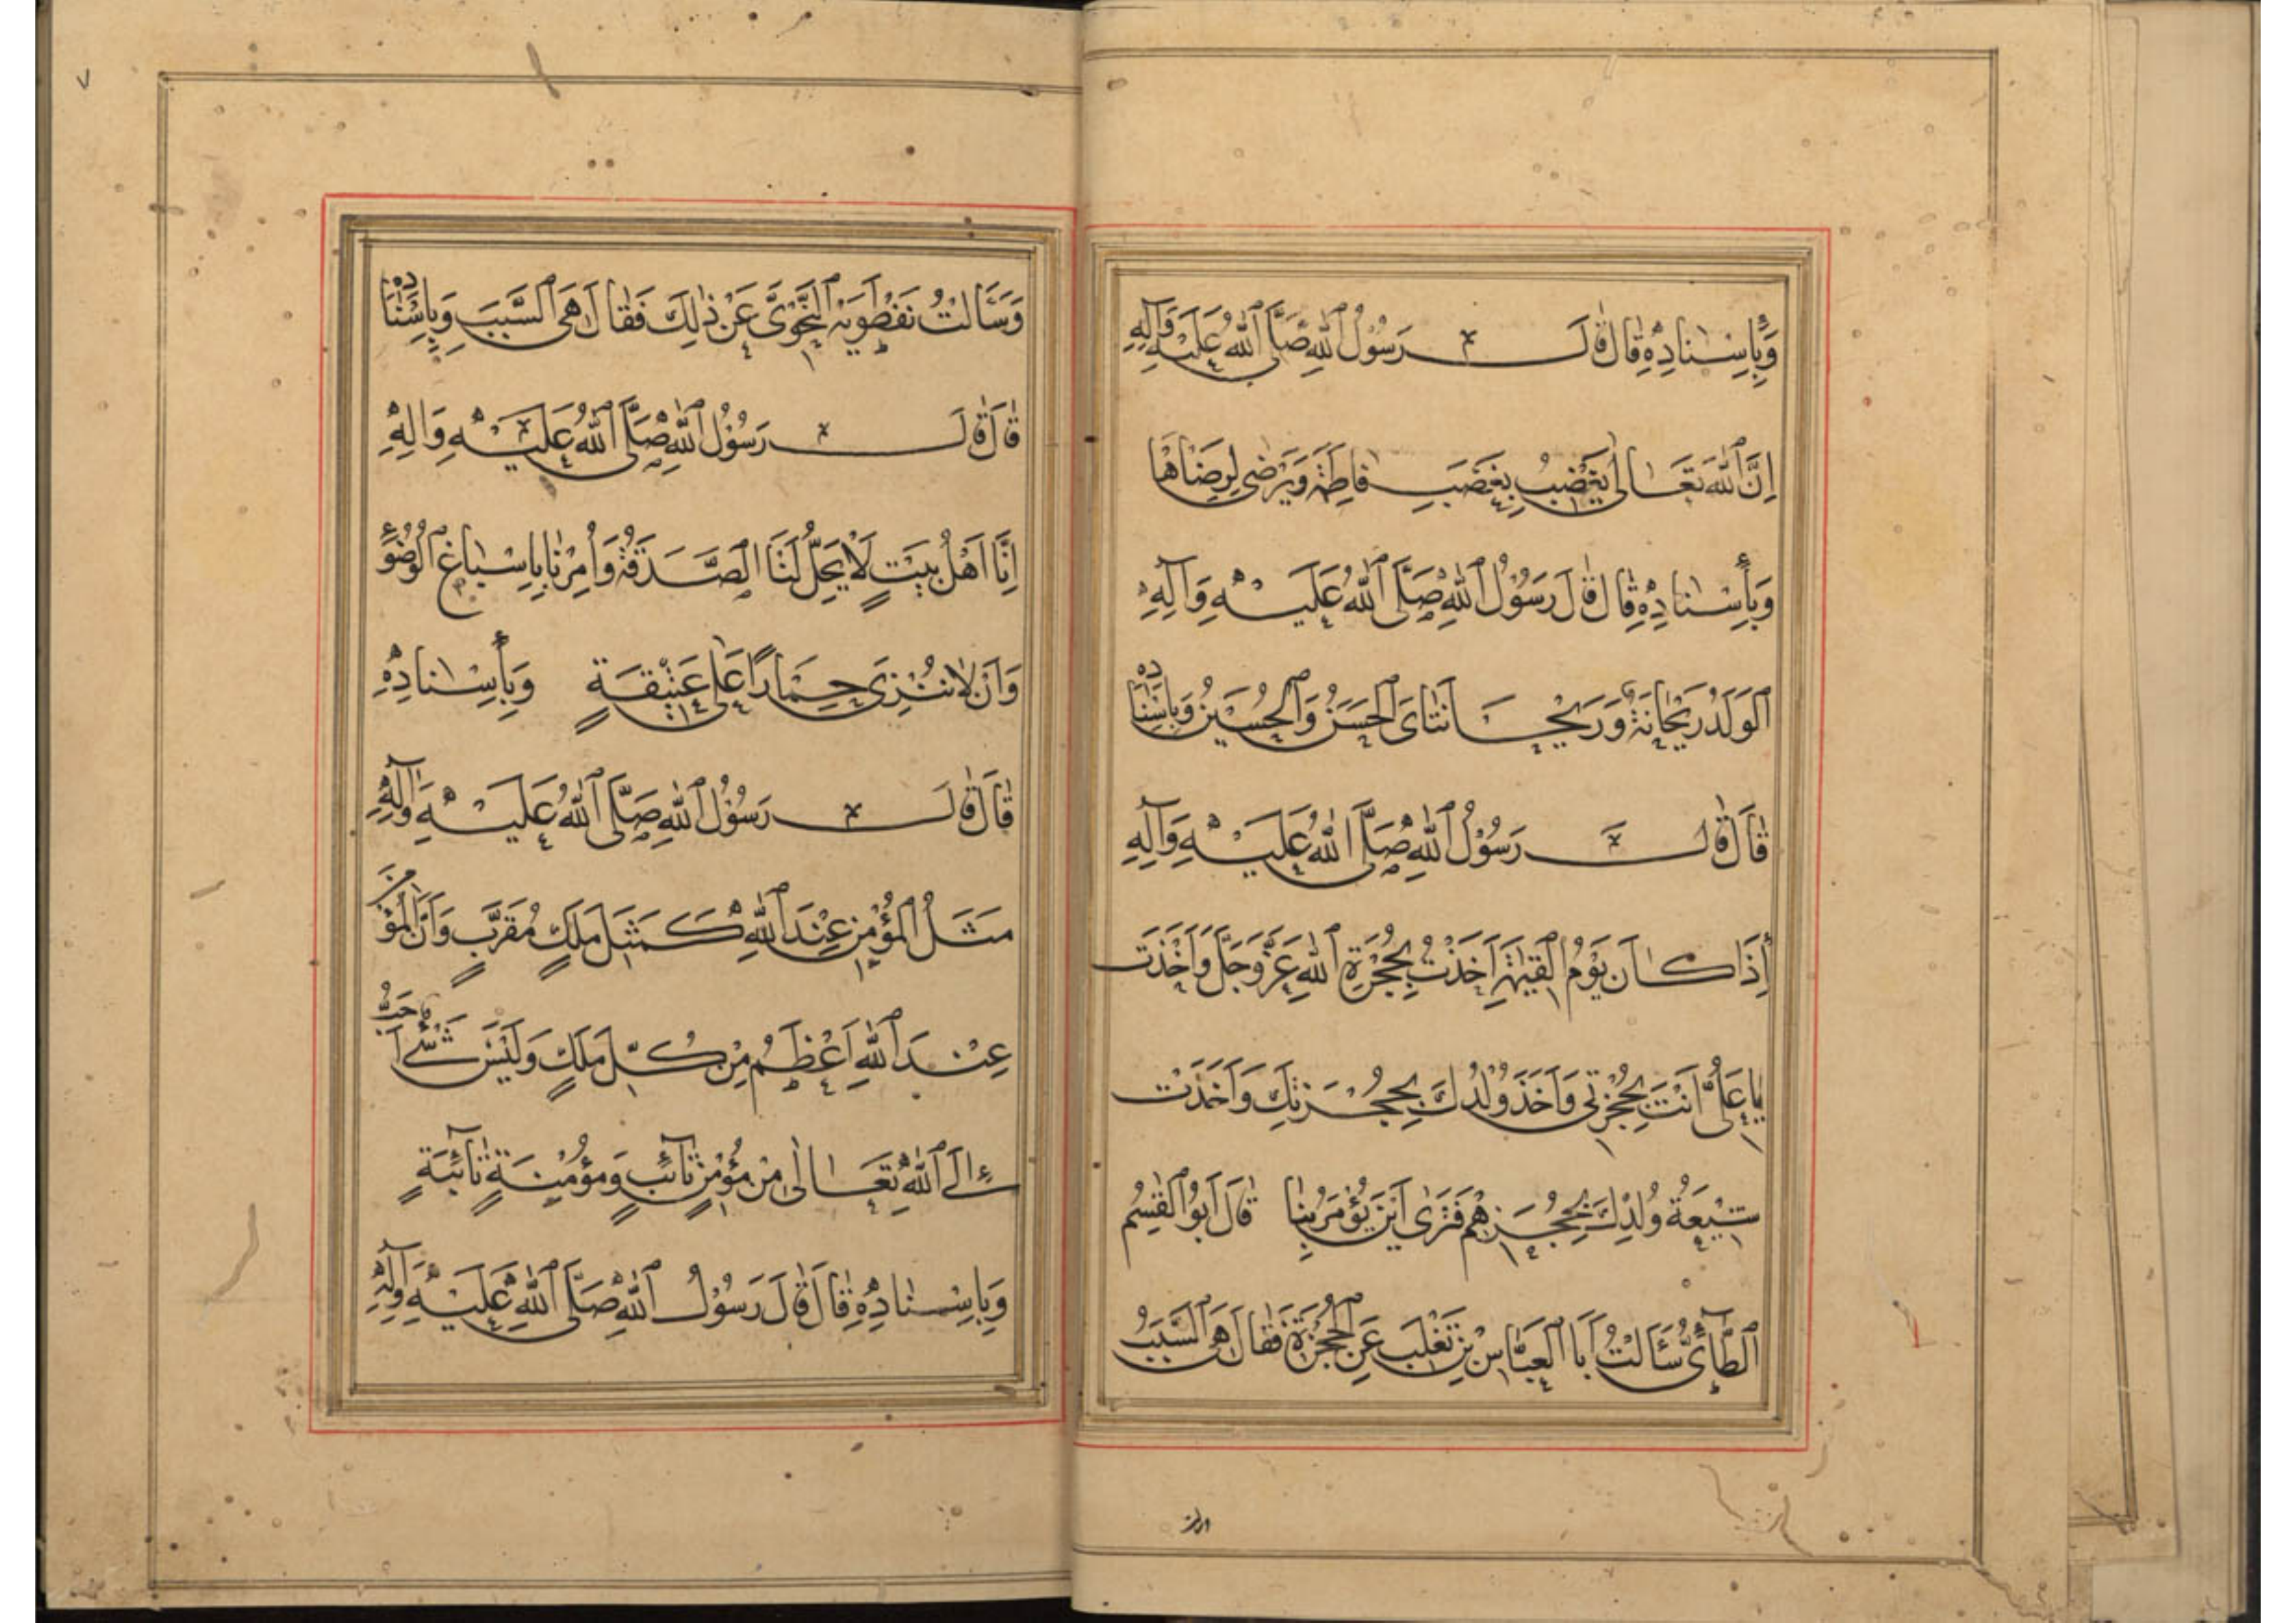 وَبِاِسْنادِهِ قالَ قالَ رَسُوْلُ اللهِ صَلَّى اللهُ عَلَيْهِ وَآلِهِ
اِنَّ اللهَ تَعَالىٰ يَغْضِبُ بِغَضَبِ فاطِمَةَ وَيَرْضىٰ لِرِضَاهٰا
وَبِأِسْنادِهِ قالَ قالَ رَسُوْلُ اللهِ صَلَّى اللهُ عَلَيْهِ وَآلِهِ
اَلْوَلَدُ رَيْحانَةٌ وَرَيْحانَتاىَ الْحَسَنُ وَالْحُسَيْنُ وَبِاِسْنادِهِ
قالَ قالَ رَسُوْلُ اللهِ صَلَّى اللهُ عَلَيْهِ وَآلِهِ
إِذَا كانَ يَوْمُ الْقِيٰمَةِ اَخَذْتُ بِحُجْزَةِ اللهِ عَزَّوَجَلَّ وَاَخَذْتَ
يا عَلىُّ اَنْتَ بِحُجْزَتى وَاَخَذَ وُلْدُكَ بِحُجْزَتِكَ وَاَخَذَتْ
شيْعَةُ وُلْدِكَ بِحُجْزِهِمْ فَتَرىٰ اَيْنَ يُؤْمَرُ بِنٰا قالَ اَبُو الْقٰسِمِ
الطّآئىُّ سَئَالْتُ اَبَا الْعَبّاسِ بْنِ تَغْلَبَ عَنِ الْحُجْزَةِ فَقٰالَ هِىَ السَّبَبُ
وَسَئَالْتُ نَفْطَوَيْهِ النَّحْوِىَّ عَنْ ذٰلِكَ فَقٰالَ هِىَ السَّبَبَ وَبِاِسْنادِهِ
قالَ قالَ رَسُوْلُ اللهِ صَلَّى اللهُ عَلَيْهِ وَالِهِ
اِنّا اَهْلُ بَيْتٍ لاٰ يَحِلُّ لَنَا الصَّدَقَةُ وَاُمِرْنا بِاِسْباغِ الْوُضُوْءِ
وَاَنْ لاٰ نُنْزِىَ حِمَارًا عَلىٰ عَتيْقَةٍ وَبِأِسْنادِهِ
قالَ قالَ رَسُوْلُ اللهِ صَلَّى اللهُ عَلَيْهِ وَآلِهِ
مَثَلُ الْمُؤْمِنِ عِنْدَ اللهِ كَمَثَلِ مَلَكٍ مُقَرَّبٍ وَاَنَّ الْمُؤْمِنَ
عِنْدَ اللهِ اَعْظَمُ مِنْ كُلِّ مَلَكٍ وَلَيْسَ شَئٌ اَحَبُّ
اِلَى اللهِ تَعَالىٰ مِنْ مُؤْمِنٍ تٰآئِبٍ وَمؤْمِنَةٍ تٰآئِبَةٍ
وَبِاِسْنادِهِ قالَ قالَ رَسُوْلُ اللهِ صَلَّى اللهُ عَلَيْهِ وَآلِهِ
٧